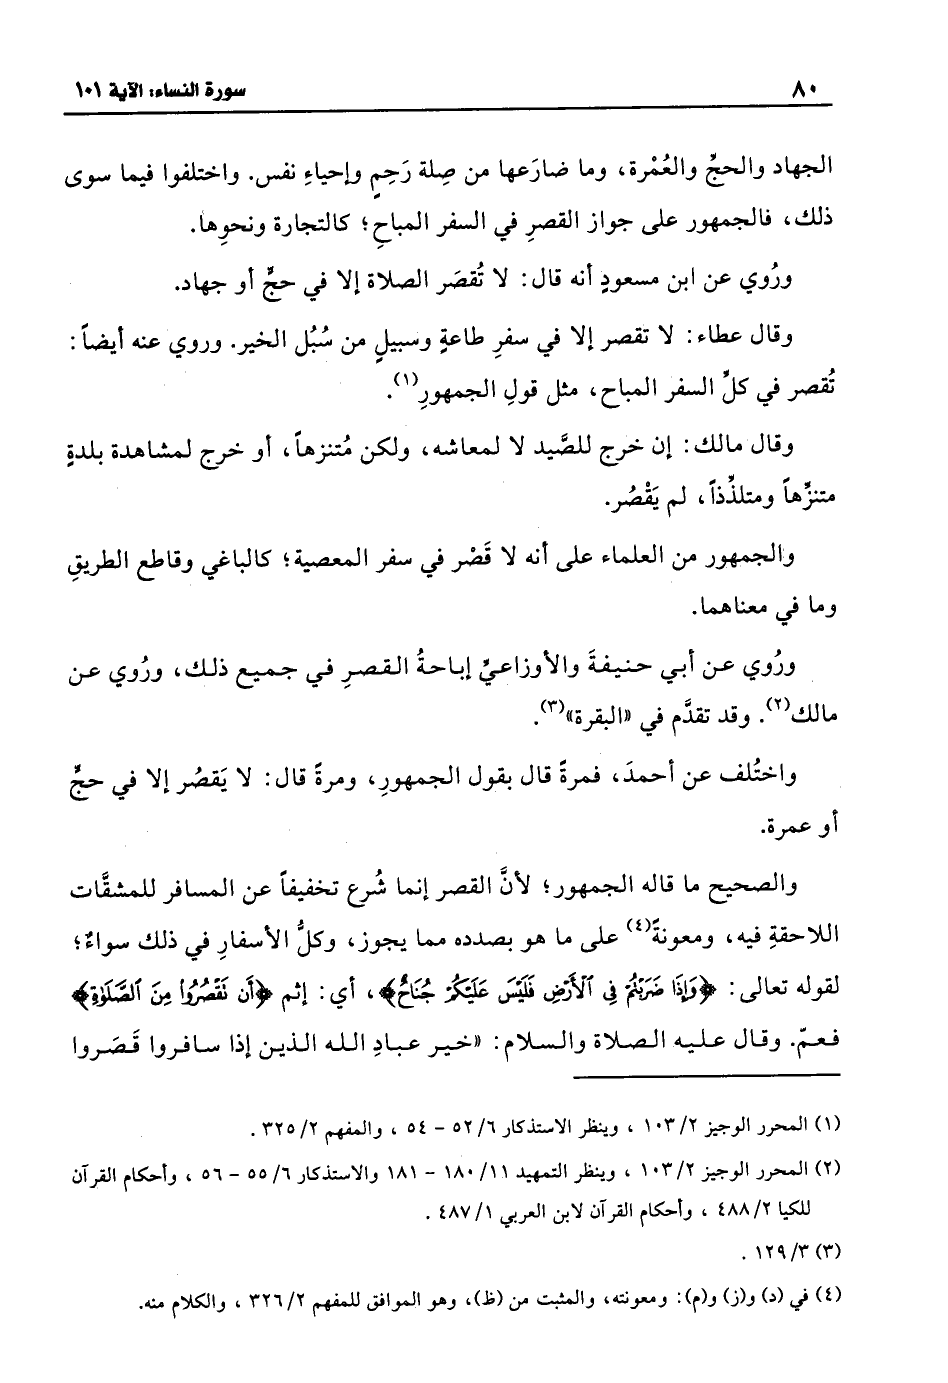 ٨٠
سورة النساء: الآية ١٠١
الجهاد والحجِّ والعُمْرة، وما ضارَعها من صِلة رَحِمٍ وإحياءِ نفس. واختلفوا فيما سوى
ذلك، فالجمهور على جواز القصرِ في السفر المباحِ؛ كالتجارة ونحوِها.
ورُوي عن ابن مسعودٍ أنه قال: لا تُقصَر الصلاة إلا في حجٍّ أو جهاد.
وقال عطاء: لا تقصر إلا في سفرِ طاعةٍ وسبيلٍ من سُبُل الخير. وروي عنه أيضاً:
تُقصر في كلِّ السفر المباح، مثل قولِ الجمهورِ(١).
وقال مالك: إن خرج للصَّيد لا لمعاشه، ولكن مُتنزهاً، أو خرج لمشاهدة بلدةٍ
متنزِّهاً ومتلذِّذاً، لم يَقْصُر.
والجمهور من العلماء على أنه لا قَصْر في سفر المعصية؛ كالباغي وقاطع الطريقِ
وما في معناهما.
ورُوي عن أبي حنيفةَ والأوزاعيِّ إباحةُ القصرِ في جميع ذلك، ورُوي عن
مالك(٢). وقد تقدَّم في «البقرة»(٣).
واختُلف عن أحمدَ، فمرةً قال بقول الجمهورِ، ومرةً قال: لا يَقصُر إلا في حجٍّ
أو عمرة.
والصحيح ما قاله الجمهور؛ لأنَّ القصر إنما شُرع تخفيفاً عن المسافر للمشقَّات
اللاحقةِ فيه، ومعونةً(٤) على ما هو بصدده مما يجوز، وكلُّ الأسفارِ في ذلك سواءٌ؛
لقوله تعالى: ﴿وَإِذَا ضَرَبْتُمْ فِي ٱلْأَرْضِ فَلَيْسَ عَلَيْكُمْ جُنَاحٌ﴾، أي: إثم ﴿أَن تَقْصُرُوا۟ مِنَ ٱلصَّلَوٰةِ﴾
فعمّ. وقال عليه الصلاة والسلام: «خير عبادِ الله الذين إذا سافروا قَصَروا
(١) المحرر الوجيز ١٠٣/٢ ، وينظر الاستذكار ٥٢/٦ – ٥٤ ، والمفهم ٣٢٥/٢ .
(٢) المحرر الوجيز ١٠٣/٢ ، وينظر التمهيد ١٨٠/١١ – ١٨١ والاستذكار ٥٥/٦ – ٥٦ ، وأحكام القرآن
للكيا ٤٨٨/٢ ، وأحكام القرآن لابن العربي ٤٨٧/١ .
(٣) ١٢٩/٣ .
(٤) في (د) و(ز) و(م): ومعونته، والمثبت من (ظ)، وهو الموافق للمفهم ٣٢٦/٢ ، والكلام منه.